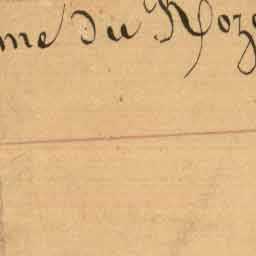 me du Roz